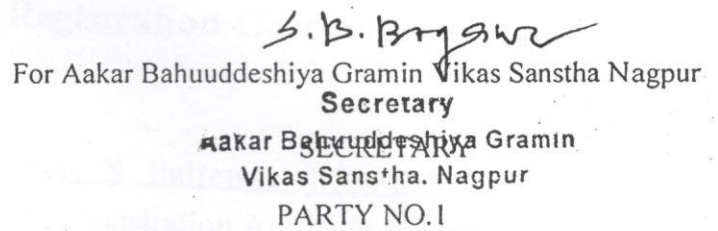 S. B.
For Aakar Bahuuddeshiya Gramin Vikas Sanstha Nagpur
Secretary
Aakar Bahuuddeshiya Gramin
SECRETARY
Vikas Sanstha. Nagpur
PARTY NO.1